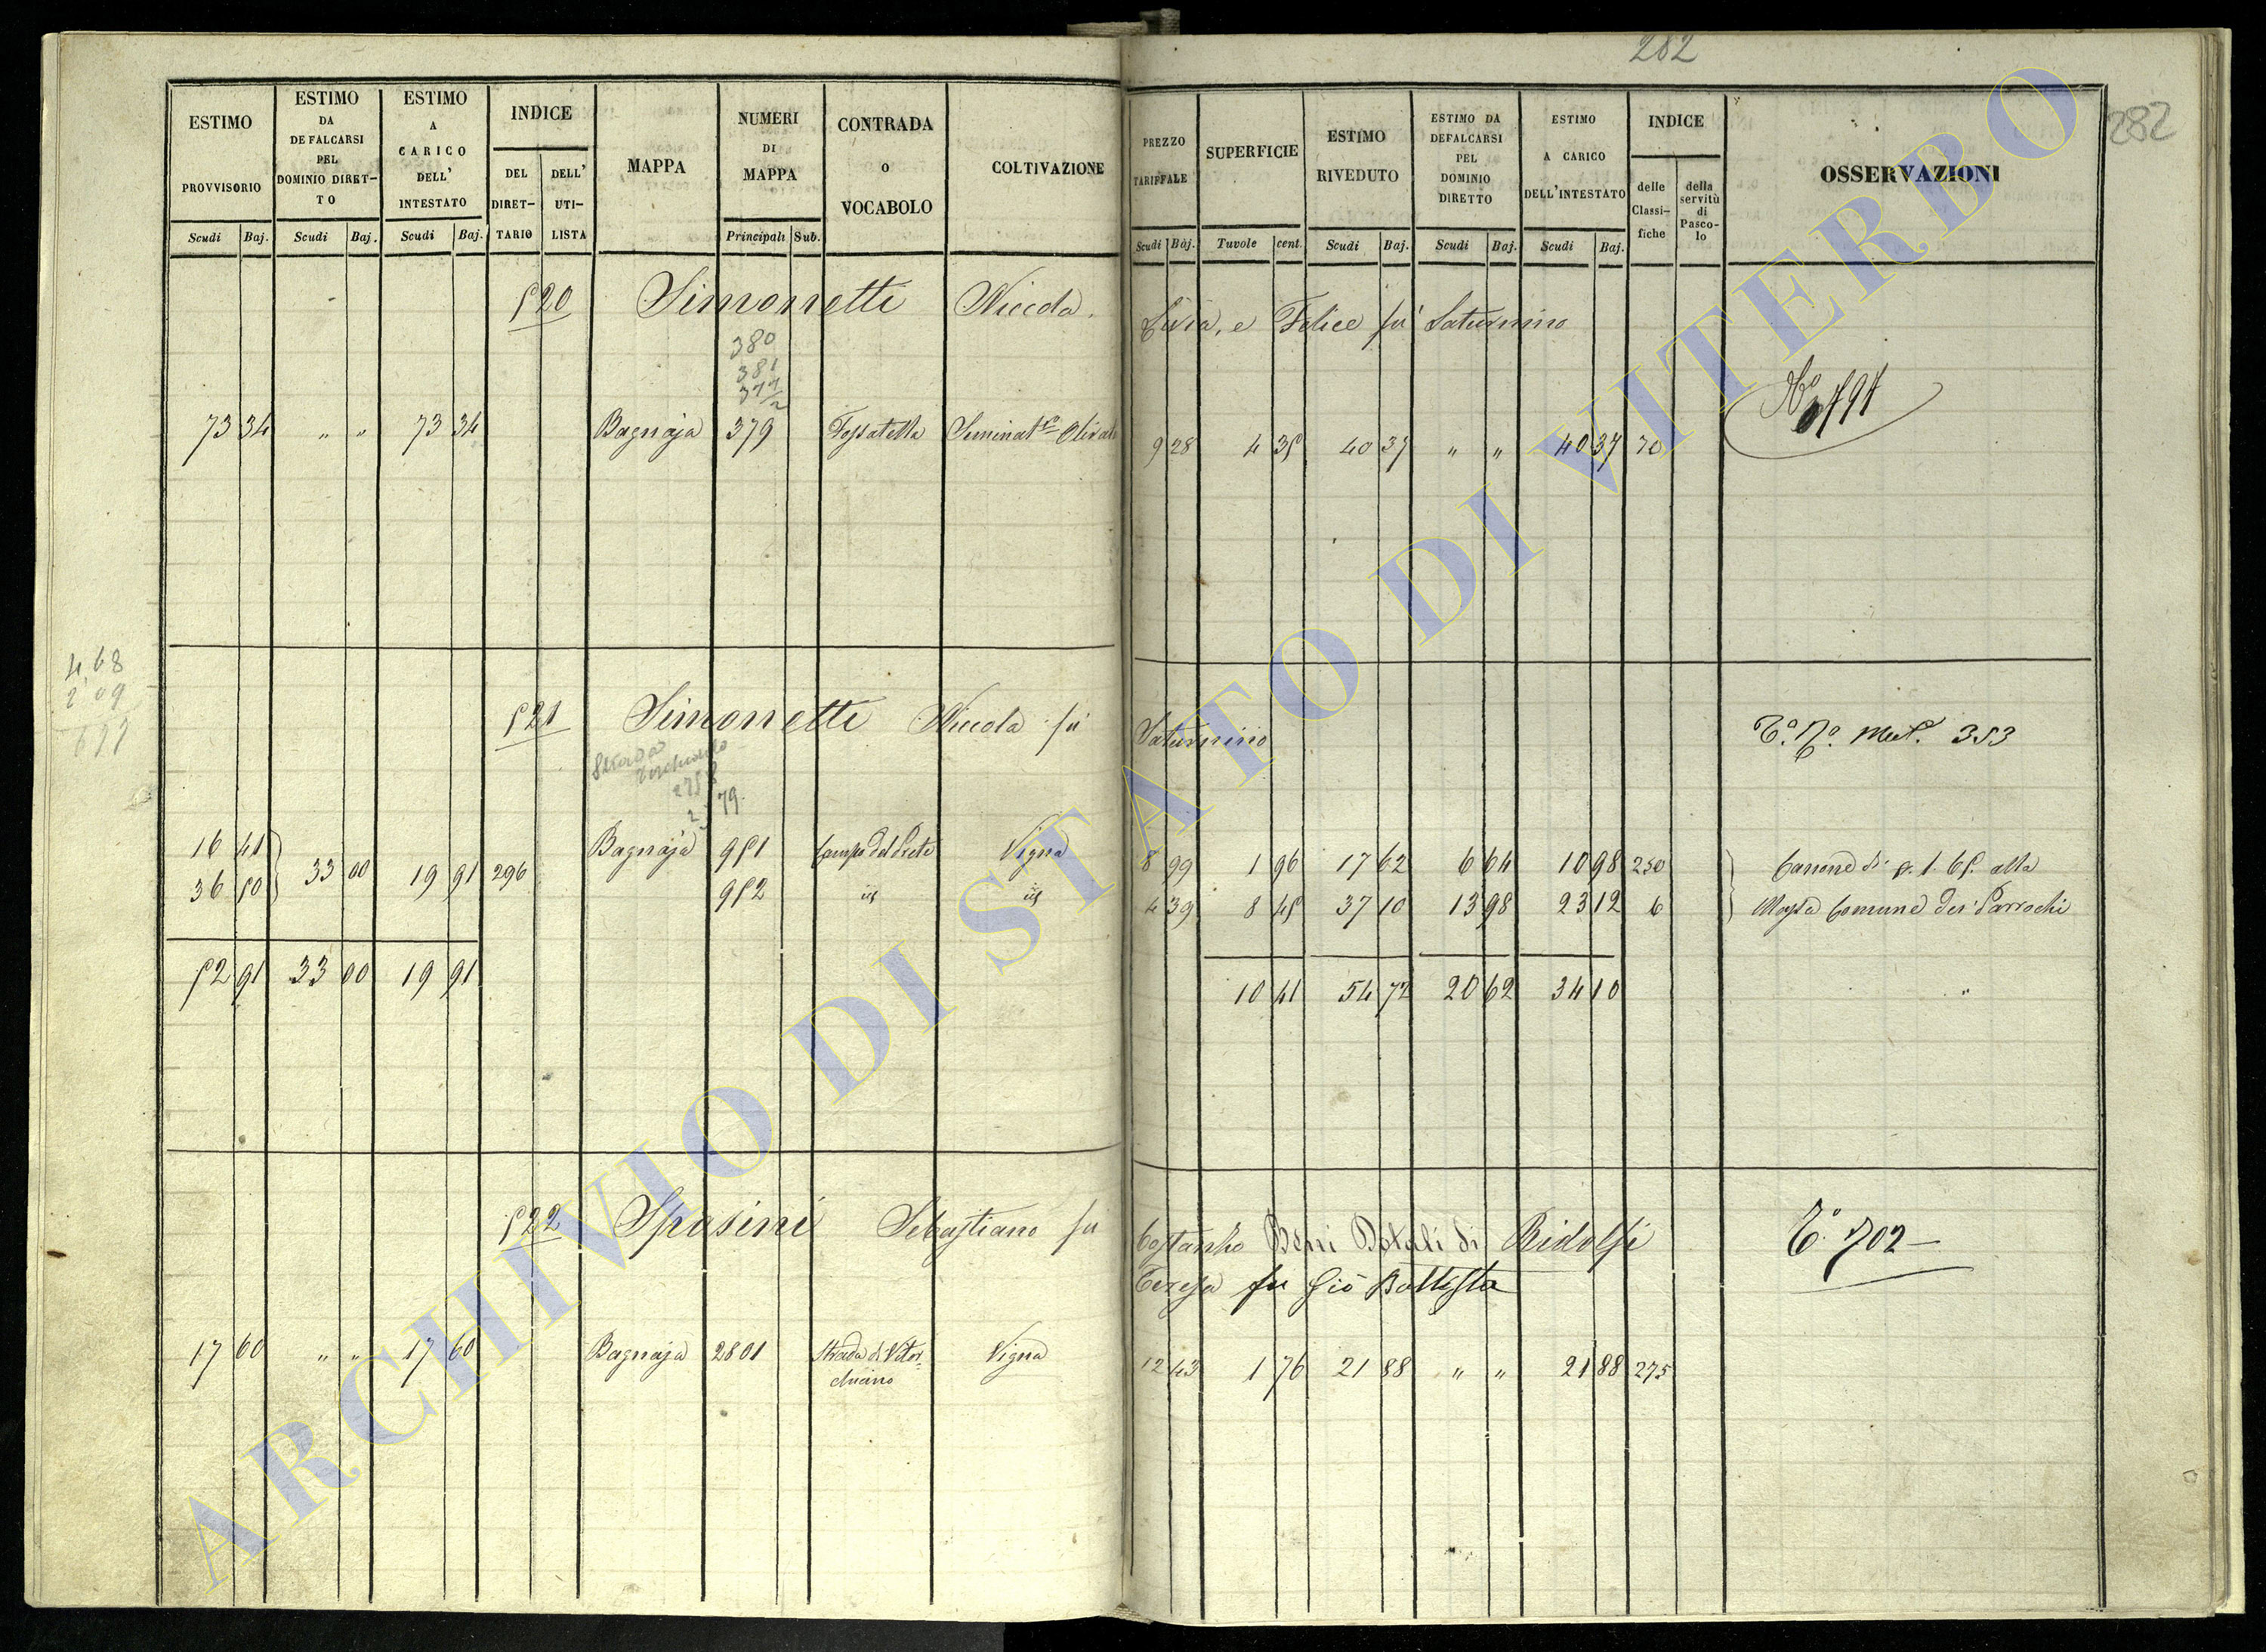 282
282
ESTIMO PROVVISORIO
ESTIMO DA DEFALCARSI PEL DOMINIO DIRET-TO
ESTIMO A CARICO DELL' INTESTATO
INDICE
DEL DIRET-TARIO
DELL' UTI-LISTA
MAPPA
NUMERI DI MAPPA
CONTRADA O VOCABOLO
COLTIVAZIONE
PREZZO TARIFFALE
SUPERFICIE
ESTIMO RIVEDUTO
ESTIMO DA DEFALCARSI PEL DOMINIO DIRETTO
ESTIMO A CARICO DELL'INTESTATO
INDICE
delle Classi-fiche
della servitù di Pasco-lo
OSSERVAZIONI
Scudi Baj. Scudi Baj. Scudi Baj. Principali Sub. Scudi Baj. Tavole cent. Scudi Baj. Scudi Baj. Scudi Baj.
520 Simonetti Niccola. Livia, e Felice fu Saturnino
380
381
377/2
73 34 " " 73 34 Bagnaja 379 Fossatella Seminat.° Olivato 9 28 4 35 40 37 " " 40 37 70
4,68
2,09
521 Simonetti Niccola fu Saturnino
T.° N.° Mut. 353
Strada
79.
16 41 Bagnaja 951 Campo del Prete Vigna 8 99 1 96 17 62 6 64 10 98 250 Canone di s. 1. 65. alla
33 00 19 91 296
36 50 952 id id 4 39 8 45 37 10 13 98 23 12 6 Massa Comune dei Parrochi
52 91 33 00 19 91 10 41 54 72 20 62 34 10 "
522 Spasini Sebastiano fu Costanzo Beni Dotali di Ridolfi
Teresa fu Gio Battista
T.° 702
17 60 " " 17 60 Bagnaja 2801 Strada di Vitor-chiano Vigna 12 43 1 76 21 88 " " 21 88 275
ARCHIVIO DI STATO DI VITERBO